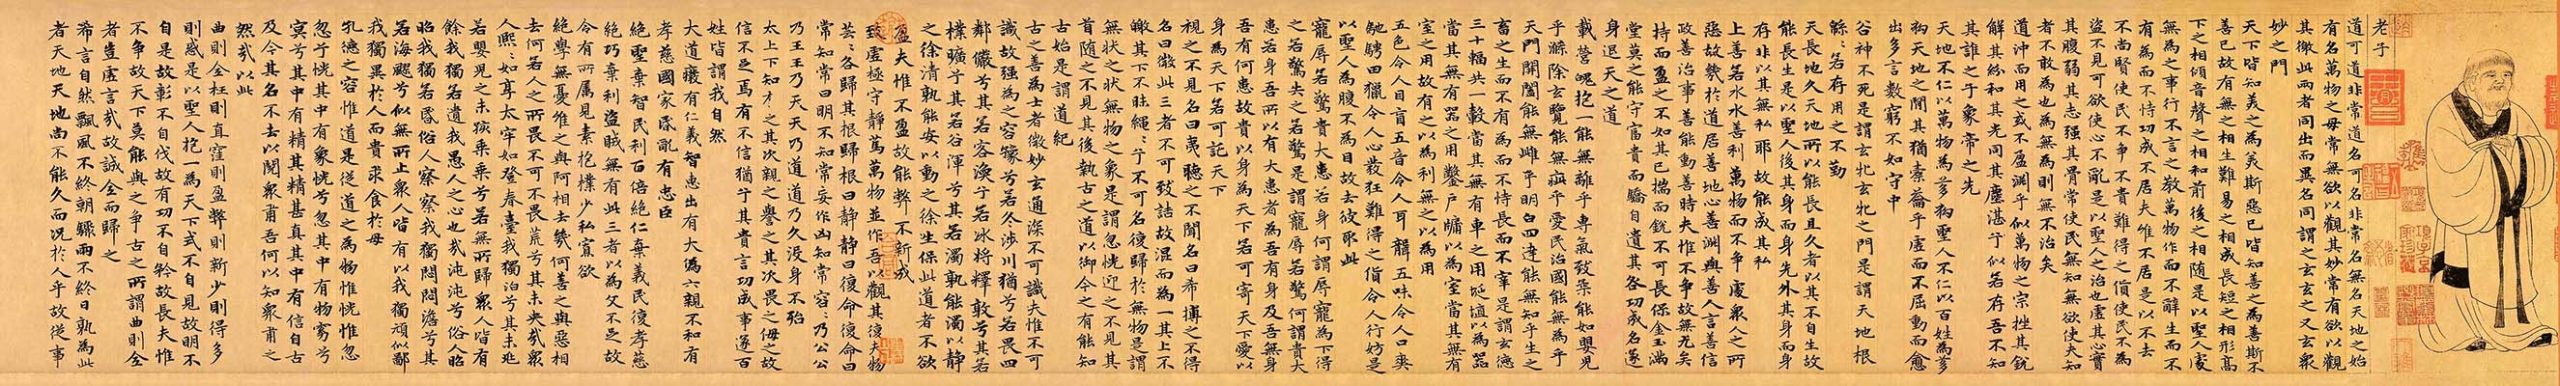 老子
道可道非常道名可名非常名無名天地之始
有名萬物之母常無欲以觀其妙常有欲以觀
其徼此兩者同出而異名同謂之玄玄之又玄衆
妙之門
天下皆知美之為美斯惡已皆知善之為善斯不
善已故有無之相生難易之相成長短之相形高
下之相傾音聲之相和前後之相隨是以聖人處
無為之事行不言之教萬物作而不辭生而不
有為而不恃功成不居夫惟不居是以不去
不尚賢使民不爭不貴難得之貨使民不為
盜不見可欲使心不亂是以聖人之治也虛其心實
其腹弱其志强其骨常使民無知無欲使夫知
者不敢為也為無為則無不治矣
道沖而用之或不盈淵乎似萬物之宗挫其銳
解其紛和其光同其塵湛兮似若存吾不知
其誰之子象帝之先
天地不仁以萬物為芻狗聖人不仁以百姓為芻
狗天地之間其猶橐籥乎虛而不屈動而愈
出多言數窮不如守中
谷神不死是謂玄牝玄牝之門是謂天地根
緜緜若存用之不勤
天長地久天地所以能長且久者以其不自生故
能長生是以聖人後其身而身先外其身而身
存非以其無私耶故能成其私
上善若水水善利萬物而不爭處衆人之所
惡故幾於道居善地心善淵與善人言善信
政善治事善能動善時夫惟不爭故無尤矣
持而盈之不如其已揣而銳不可長保金玉滿
堂莫之能守富貴而驕自遺其咎功成名遂
身退天之道
載營魄抱一能無離乎專氣致柔能如嬰兒
乎滌除玄覽能無疵乎愛民治國能無為乎
天門開闔能無雌乎明白四達能無知乎生之
畜之生而不有為而不恃長而不宰是謂玄德
三十輻共一轂當其無有車之用埏埴以為器
當其無有器之用鑿戶牖以為室當其無有
室之用故有之以為利無之以為用
五色令人目盲五音令人耳聾五味令人口爽
馳騁田獵令人心發狂難得之貨令人行妨是
以聖人為腹不為目故去彼取此
寵辱若驚貴大患若身何謂寵辱寵為下得
之若驚失之若驚是謂寵辱若驚何謂貴大
患若身吾所以有大患者為吾有身及吾無身
吾有何患故貴以身為天下若可寄天下愛以
身為天下若可託天下
視之不見名曰夷聽之不聞名曰希搏之不得
名曰微此三者不可致詰故混而為一其上不
皦其下不昧繩繩乎不可名復歸於無物是謂
無狀之狀無物之象是謂忽恍迎之不見其
首隨之不見其後執古之道以御今之有能知
古始是謂道紀
古之善為士者微妙玄通深不可識夫惟不可
識故强為之容豫兮若冬涉川猶兮若畏四
鄰儼兮其若客渙兮若冰將釋敦兮其若
樸曠兮其若谷渾兮其若濁孰能濁以靜
之徐清孰能安以動之徐生保此道者不欲
盈夫惟不盈故能弊不新成
致虛極守靜篤萬物並作吾以觀其復夫物
芸芸各歸其根歸根曰靜靜曰復命復命曰
常知常曰明不知常妄作凶知常容容乃公公
乃王王乃天天乃道道乃久沒身不殆
太上下知有之其次親之譽之其次畏之侮之故
信不足焉有不信猶乎其貴言功成事遂百
姓皆謂我自然
大道廢有仁義智惠出有大偽六親不和有
孝慈國家昏亂有忠臣
絕聖棄智民利百倍絕仁棄義民復孝慈
絕巧棄利盜賊無有此三者以為文不足故
令有所屬見素抱樸少私寡欲
絕學無憂唯之與阿相去幾何善之與惡相
去何若人之所畏不可不畏荒兮其未央哉衆
人熙熙如享太牢如登春臺我獨泊兮其未兆
若嬰兒之未孩乘乘兮若無所歸衆人皆有
餘我獨若遺我愚人之心也哉沌沌兮俗人昭
昭我獨若昏俗人察察我獨悶悶澹兮其
若海飂兮似無所止衆人皆有以我獨頑似鄙
我獨異於人而貴求食於母
孔德之容惟道是從道之為物惟恍惟忽
忽兮恍其中有象恍兮忽其中有物窈兮
冥兮其中有精其精甚真其中有信自古
及今其名不去以閱衆甫吾何以知衆甫之
然哉以此
曲則全枉則直窪則盈弊則新少則得多
則惑是以聖人抱一為天下式不自見故明不
自是故彰不自伐故有功不自矜故長夫惟
不爭故天下莫能與之爭古之所謂曲則全
者豈虛言哉故誠全而歸之
希言自然飄風不終朝驟雨不終日孰為此
者天地天地尚不能久而況於人乎故從事